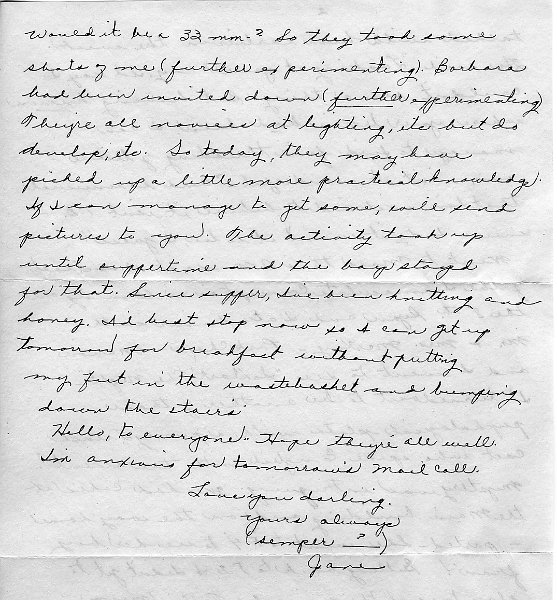 Would it be a 33 mm-? So they took some
shots of me (further experimenting). Barbara
had been invited down (further experimenting)
They're all novices at lighting, etc but do
develop, etc. So today, they may have
picked up a little more practical knowledge.
If I can manage to get some, will send
pictures to you. The activity took up
until suppertime and the boys stayed
for that. Since supper, I've been knitting and
honey, I'd best stop now so I can get up
tomorrow for breakfast without putting
my foot in the wastebasket and bumping
down the stairs.
Hello, to everyone. Hope they're all well.
I'm anxious for tomorrow's mail call.
Love you darling.
yours always
(semper ?)
Jane